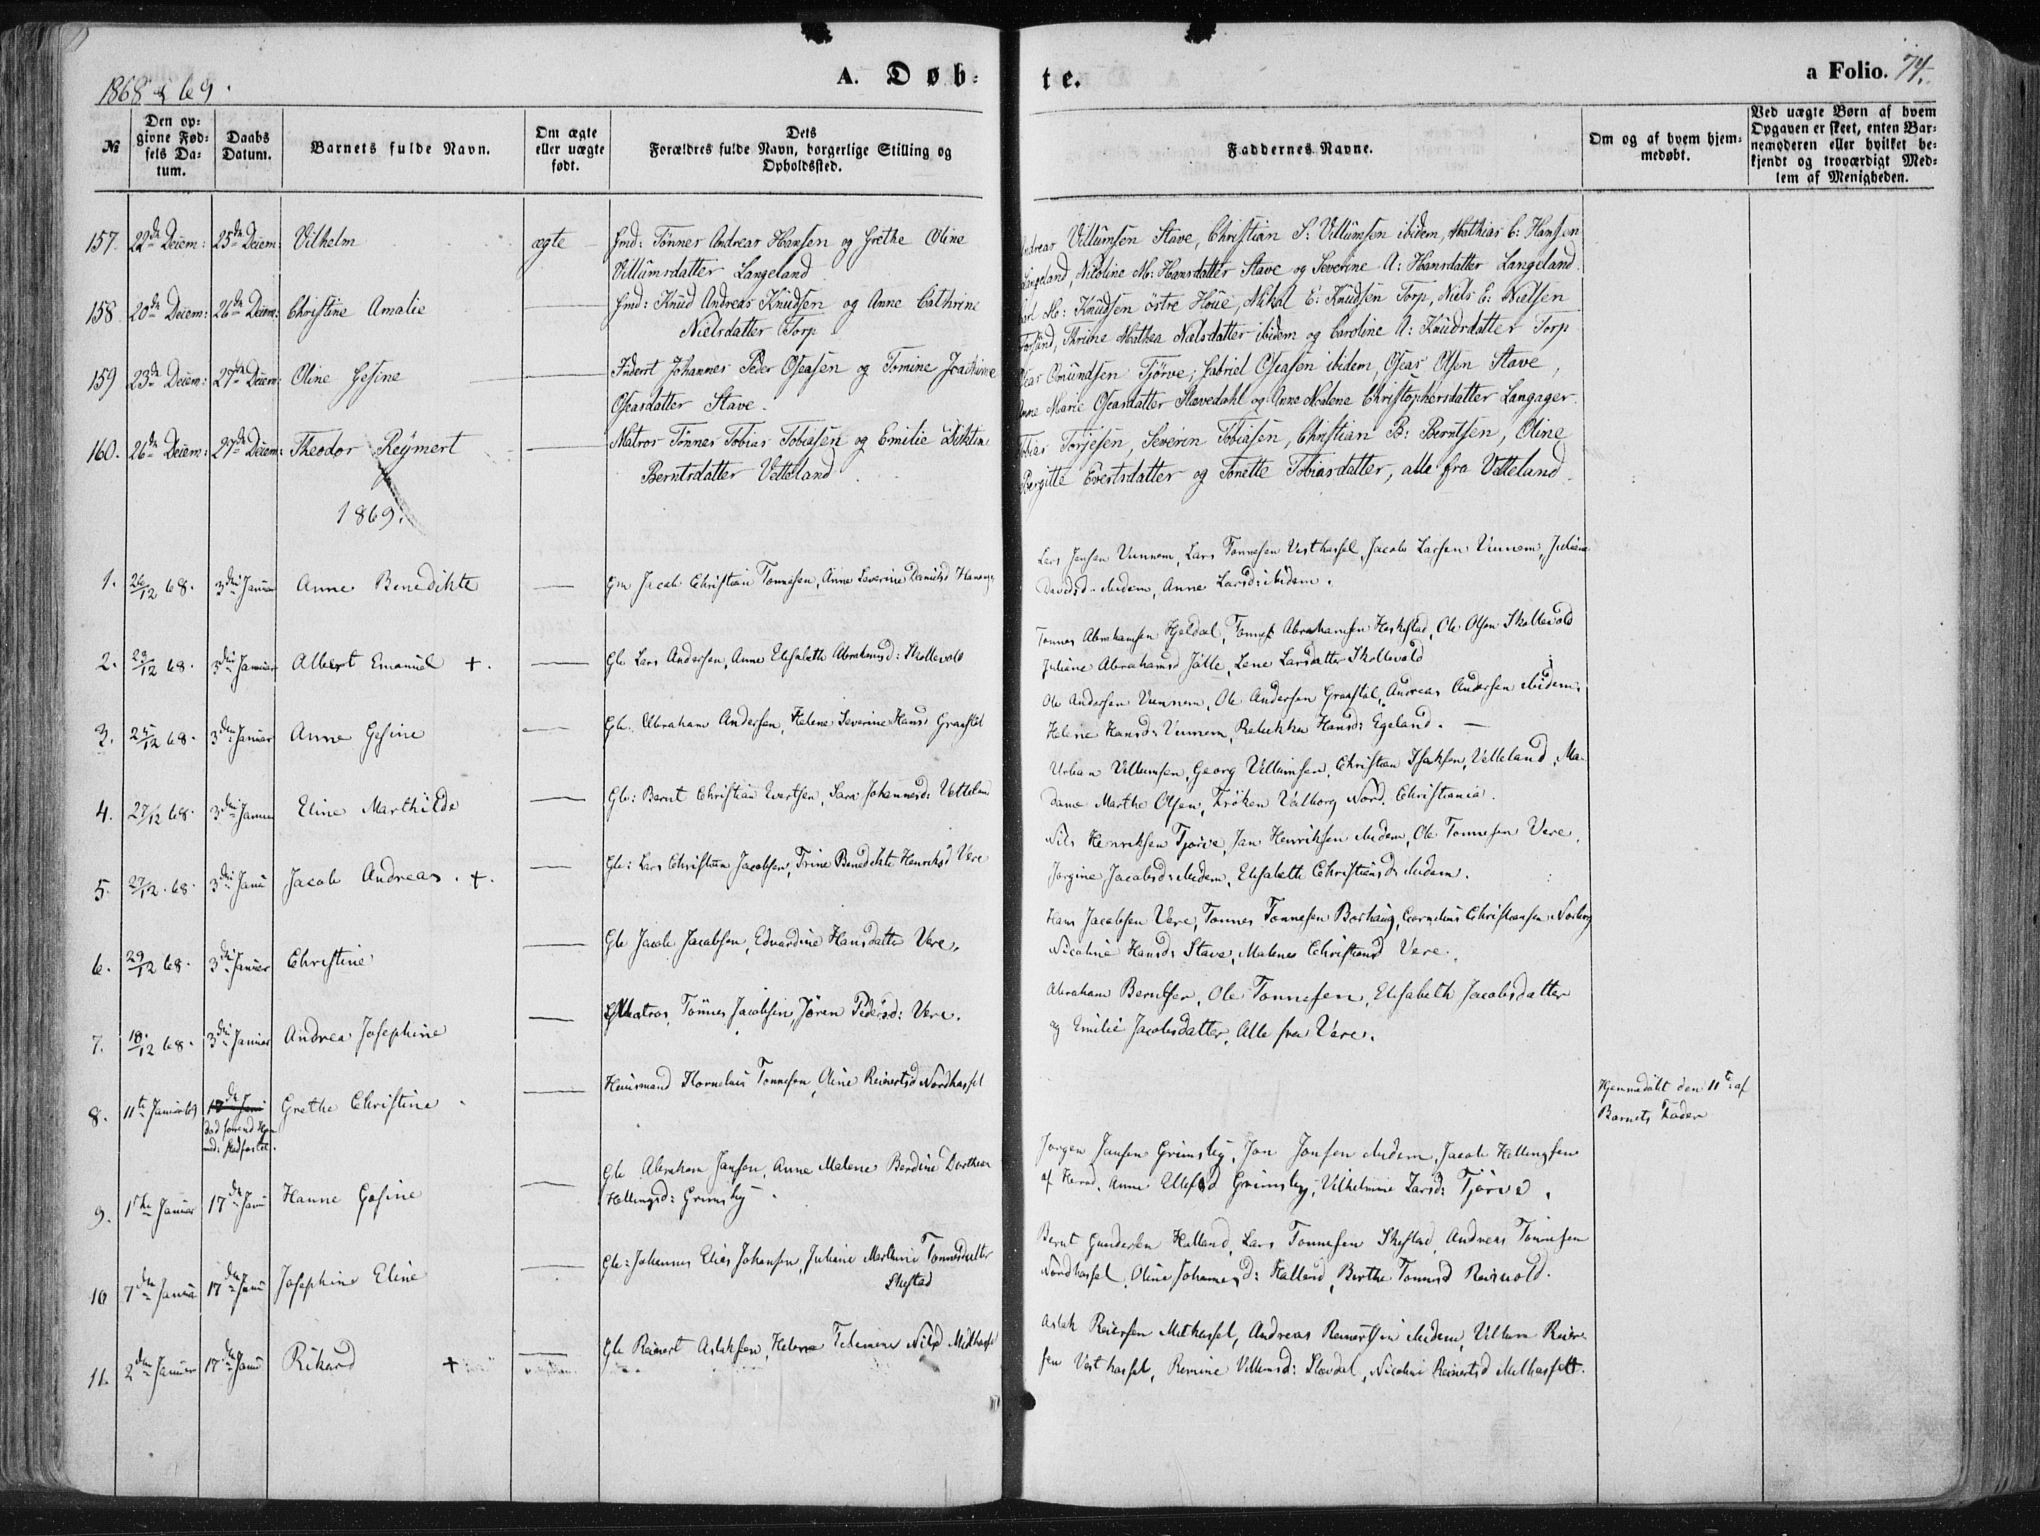 1868 & 69.
A. Døb-
te.
a Folio. 74.
№
Den op-
givne Fød-
sels Da-
tum.
Daabs
Datum.
Barnets fulde Navn.
Om ægte
eller uægte
født.
Dets
Forældres fulde Navn, borgerlige Stilling og
Opholdssted.
Faddernes Navne.
Om og af hvem hjem-
medøbt.
Ved uægte Børn af hvem
Opgaven er skeet, enten Bar-
nemoderen eller hvilket be-
kjendt og troværdigt Med-
lem af Menigheden.
157. 22de Decem: 25de Decem: Vilhelm ægte Gmd: Tönnes Andreas Hansen og Grethe Oline
Villumsdatter Langeland
Andreas Villumsen Stave, Christian S: Villumsen ibidem, Mathias C: Hansen
Langeland, Nicoline M: Hansdatter Stave og Severine A: Hansdatter Langeland.
158 20de Decem: 26de Decem: Christine Amalie — Gmd: Knud Andreas Knudsen og Anne Cathrine
Nielsdatter Torp
Carl M: Knudsen östre Houe, Mikal E: Knudsen Torp, Niels E: Nielsen
Mathea Nielsdatter ibidem og Caroline A: Knudsdatter Torp
159 23de Decem: 27de Decem: Oline Gesine — Inderst Johannes Peder Oseasen og Tomine Joachime
Oseasdatter Stave.
Oseas Omundsen Tjörve, Gabriel Oseasen ibidem, Oseas Olsen Stave,
Anne Marie Oseasdatter Slevedahl og Anne Malene Christophersdatter Langager.
160. 26de Decem: 27de Decem: Theodor Reymert — Matros Tönnes Tobias Tobiasen og Emilie
Berntsdatter Vetteland
Tobias Torjesen, Severin Tobiasen, Christian B: Berntsen, Oline
Bergitte Evertsdatter og Tonette Tobiasdatter, alle fra Vetteland.
1869.
1. 26/12 68. 3die Januar Anne Benedikte — Gm Jacob Christian Tonnesen, Anne Severine Danielsd
Lars Jensen Vunnem, Lars Tonnesen Vesthassel, Jacob Larsen Vunnem, Juliane
Davidsd ibidem, Anne Larsd: ibidem.
2. 29/12 68. 3die Januar Albert Emanuel + — Gb Lars Andersen, Anne Elisabeth Abrahamsd: Skollevold
Tonnes Abrahamsen Hjeldal, Tonnes Abrahamsen Heskestad, Ole Olsen Skollevold
Juliane Abrahamsd Jölle, Lene Larsdatter Skollevold
3. 25/12 68. 3die Januar Anne Gesine — Gb. Abraham Andersen, Helene Severine Hansd Graastöl
Ole Andersen Vunnem, Ole Andersen Graastöl, Andreas Andersen ibidem,
Helene Hansd: Vunnem, Rebekka Hansd: Egeland. —
4. 27/12 68. 3die Januar Eline Marthilde — Gb: Bernt Christian Evertsen, Sara Johannesd: Vetteland
Urban Villumsen, Georg Villumsen, Christian Isaksen, Velleland, Ma-
dame Marthe Olsen, Fröken Valborg Nord. Christiania.
5. 27/12. 68. 3die Janu Jacob Andreas. +. — Gb: Lars Christian Jacobsen, Trine Benedikte Henriksd Vere
Nils Henriksen Tjörve, Jan Henriksen ibidem, Ole Tonnesen Vere,
Jorgine Jacobsd: ibidem, Elisabeth Christiansd: ibidem.
6. 29/12 68. 3die Januar Christine — Gb Jacob Jacobsen, Edvardine Hansdatte Vere,
Hans Jacobsen Vere, Tonnes Tonnesen Borhaug, Cornelius Christiansen
Nicoline Hansd: Stave, Malene Christiansd Vere.
7. 18/12 68. 3die Januar Andrea Josephine — Matros Tönnes Jacobsen, Jören Pedersd: Vere.
Abraham Berntsen, Ole Tonnesen, Elisabeth Jacobsdatter
og Emilie Jacobsdatter, Alle fra Vere.
8. 11te Januar 69 Grethe Christine — Huusmand Kornelius Tonnesen, Oline Reinertsd Nordhassel
Hjemmedöbt den 11te af
Barnets Fader
9. 1ste Januar 17de Janu Hanne Gesine — Gb Abraham Jansen, Anne Malene Berdine Dorthea
Hellingsd: Grimsby.
Jorgen Jansen Grimsby, Jan Jonsen ibidem, Jacob Hellingsen
af Herad, Anne Ellefsd Grimsby, Vilhelmine Larsd: Tjörve.
10 7de Januar 17de Janu Josephine Eline — Gb: Johannes Elias Johansen, Juliane Marthine Tonnesdatter
Skestad
Bernt Gundersen Halland, Lars Tonnesen Skestad, Andreas Tonnesen
Nordhassel, Oline Johannesd: Halland, Berthe Tonnesd
11. 2den Januar 17de Janu Rikard + — Gb Reinert Aslaksen, Helene Nilsd Midthassel
Aslak Reiersen Midthassel, Andreas Reinertsen ibidem, Villum Reier-
sen Vesthassel, Remine Villumsd: Slevdal, Nicoline Reinertsd Midthassel.